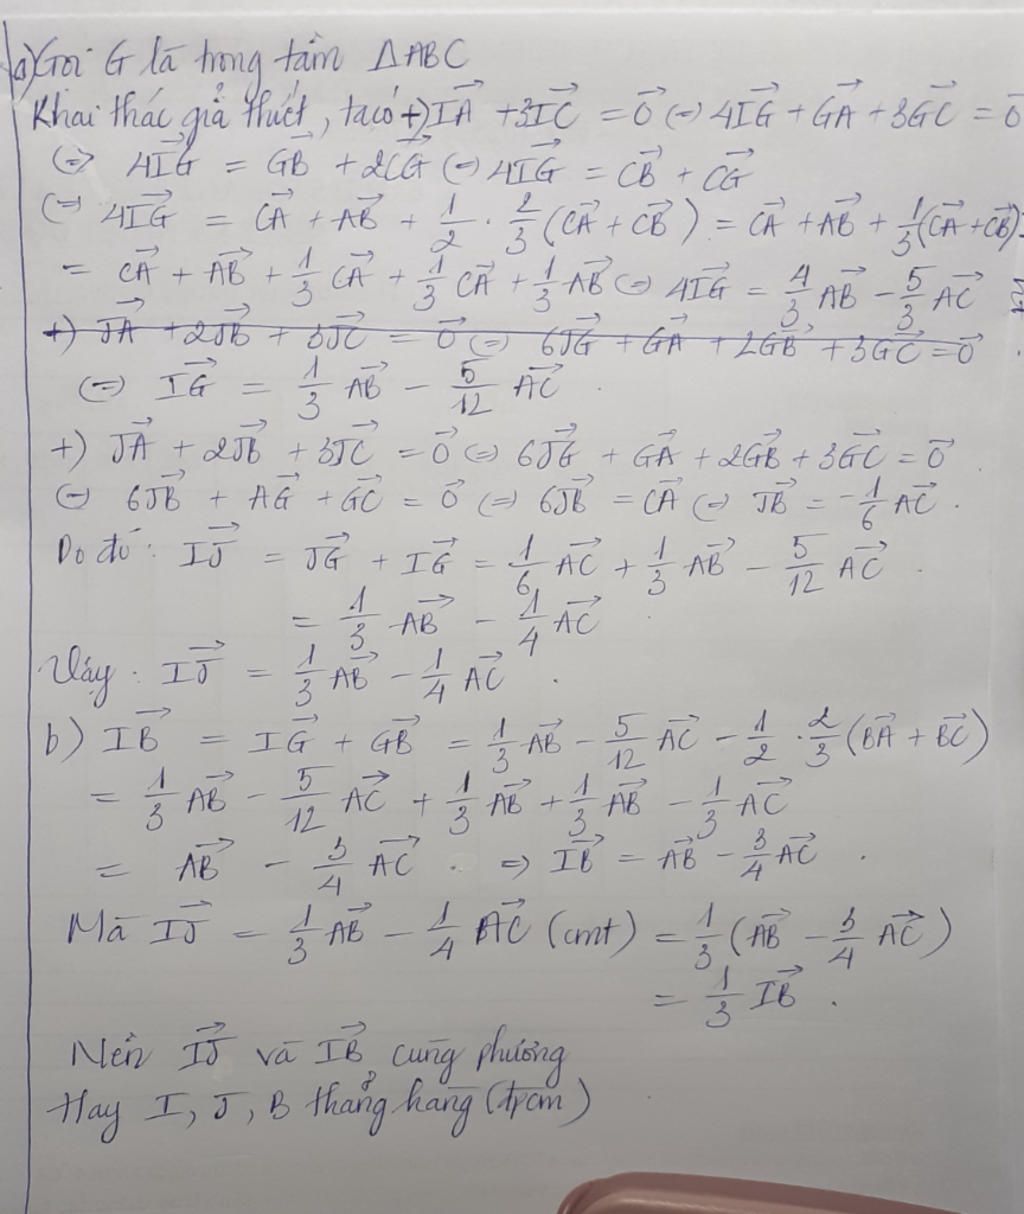 a) Gọi G là trọng tâm ΔABC
Khai thác giả thiết, ta có +) IA→ + 3IC→ = 0→ (=) 4IG→ + GA→ + 3GC→ = 0→
(=) 4IG→ = GB→ + 2CG→ (=) 4IG→ = CB→ + CG→
(=) 4IG→ = CA→ + AB→ + 1/2 · 2/3 (CA→ + CB→) = CA→ + AB→ + 1/3 (CA→ + CB→)
= CA→ + AB→ + 1/3 CA→ + 1/3 CA→ + 1/3 AB→ (=) 4IG→ = 4/3 AB→ - 5/3 AC→
+) JA→ + 2JB→ + 3JC→ = 0→ (=) 6JG→ + GA→ + 2GB→ + 3GC→ = 0→
(=) IG→ = 1/3 AB→ - 5/12 AC→
+) JA→ + 2JB→ + 3JC→ = 0→ (=) 6JG→ + GA→ + 2GB→ + 3GC→ = 0→
(=) 6JB→ + AG→ + GC→ = 0→ (=) 6JB→ = CA→ (=) JB→ = -1/6 AC→.
Do đó: IJ→ = JG→ + IG→ = 1/6 AC→ + 1/3 AB→ - 5/12 AC→.
= 1/3 AB→ - 1/4 AC→
Vậy: IJ→ = 1/3 AB→ - 1/4 AC→.
b) IB→ = IG→ + GB→ = 1/3 AB→ - 5/12 AC→ - 1/2 · 2/3 (BA→ + BC→)
= 1/3 AB→ - 5/12 AC→ + 1/3 AB→ + 1/3 AB→ - 1/3 AC→
= AB→ - 3/4 AC→. => IB→ = AB→ - 3/4 AC→.
Mà IJ→ = 1/3 AB→ - 1/4 AC→ (cmt) = 1/3 (AB→ - 3/4 AC→)
= 1/3 IB→.
Nên IJ→ và IB→ cùng phương
Hay I, J, B thẳng hàng (đpcm)